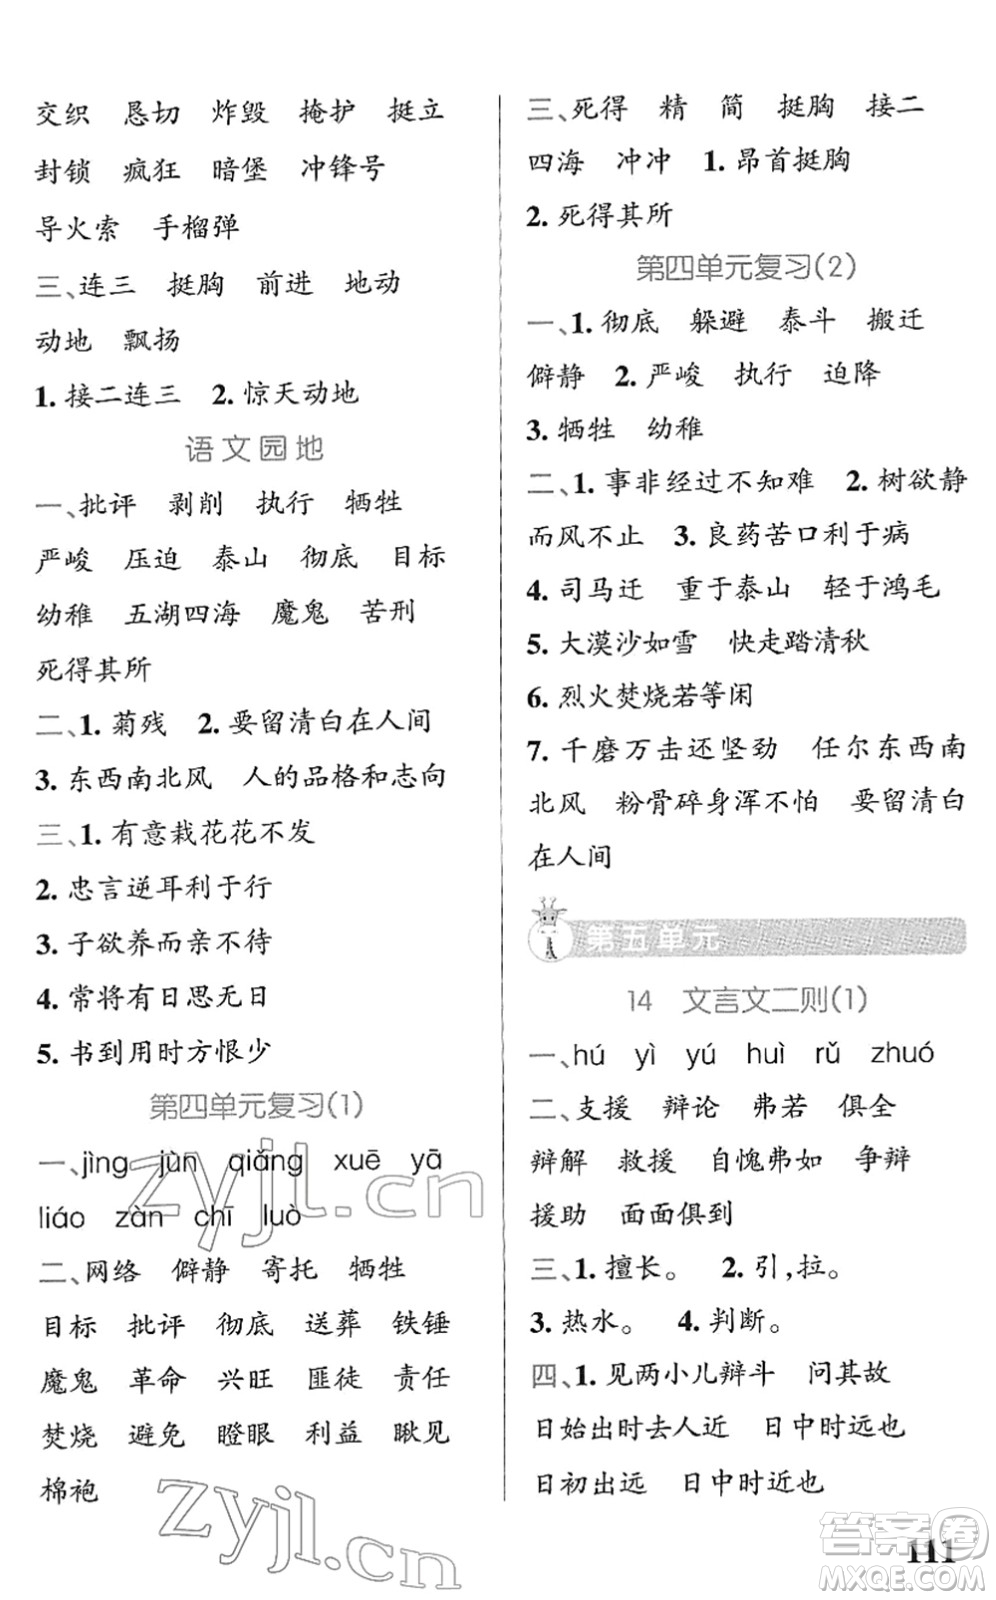 交织 恳切 炸毁 掩护 挺立
封锁 疯狂 暗堡 冲锋号
导火索 手榴弹
三、连三 挺胸 前进 地动
动地 飘扬
1. 接二连三 2. 惊天动地
语文园地
一、批评 剥削 执行 牺牲
严峻 压迫 泰山 彻底 目标
幼稚 五湖四海 魔鬼 苦刑
死得其所
二、1. 菊残 2. 要留清白在人间
3. 东西南北风 人的品格和志向
三、1. 有意栽花花不发
2. 忠言逆耳利于行
3. 子欲养而亲不待
4. 常将有日思无日
5. 书到用时方恨少
第四单元复习(1)
一、jìng jùn qiǎng xuē yā
liáo zàn chī luò
二、网络 僻静 寄托 牺牲
目标 批评 彻底 送葬 铁锤
魔鬼 革命 兴旺 匪徒 责任
焚烧 避免 瞪眼 利益 瞅见
棉袍
三、死得 精 简 挺胸 接二
四海 冲冲 1. 昂首挺胸
2. 死得其所
第四单元复习(2)
一、1. 彻底 躲避 泰斗 搬迁
僻静 2. 严峻 执行 迫降
3. 牺牲 幼稚
二、1. 事非经过不知难 2. 树欲静
而风不止 3. 良药苦口利于病
4. 司马迁 重于泰山 轻于鸿毛
5. 大漠沙如雪 快走踏清秋
6. 烈火焚烧若等闲
7. 千磨万击还坚劲 任尔东西南
北风 粉骨碎身浑不怕 要留清白
在人间
第五单元
14 文言文二则(1)
一、hú yì yú huì rǔ zhuó
二、支援 辩论 弗若 俱全
辩解 救援 自愧弗如 争辩
援助 面面俱到
三、1. 擅长。 2. 引,拉。
3. 热水。 4. 判断。
四、1. 见两小儿辩斗 问其故
日始出时去人近 日中时远也
日初出远 日中时近也
111
zyjl.cn
zyjl.cn
答案圈
MXQE.COM